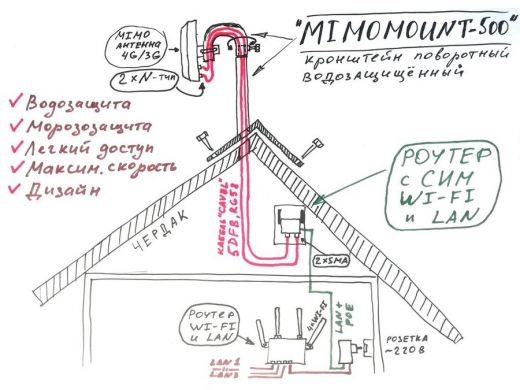 "MIMOMOUNT-500"
кронштейн поворотный
водозащищённый
MIMO
АНТЕННА
4G/3G
2×N-тип
Водозащита
Морозозащита
Легкий доступ
Максим. скорость
Дизайн
РОУТЕР
с СИМ
WI-FI
и LAN
ЧЕРДАК
КАБЕЛЬ "CAVEL"
5DFB, RG58
2×SMA
РОУТЕР
WI-FI
и LAN
4×WI-FI
LAN +
POE
РОЗЕТКА
~220В
LAN1
LAN3